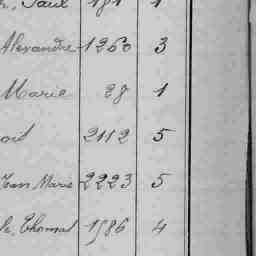 Paul 181 1
Alexandre 1260 3
Marie 28 1
oit 2112 5
Jean Marie 2223 5
Thomas 1586 4